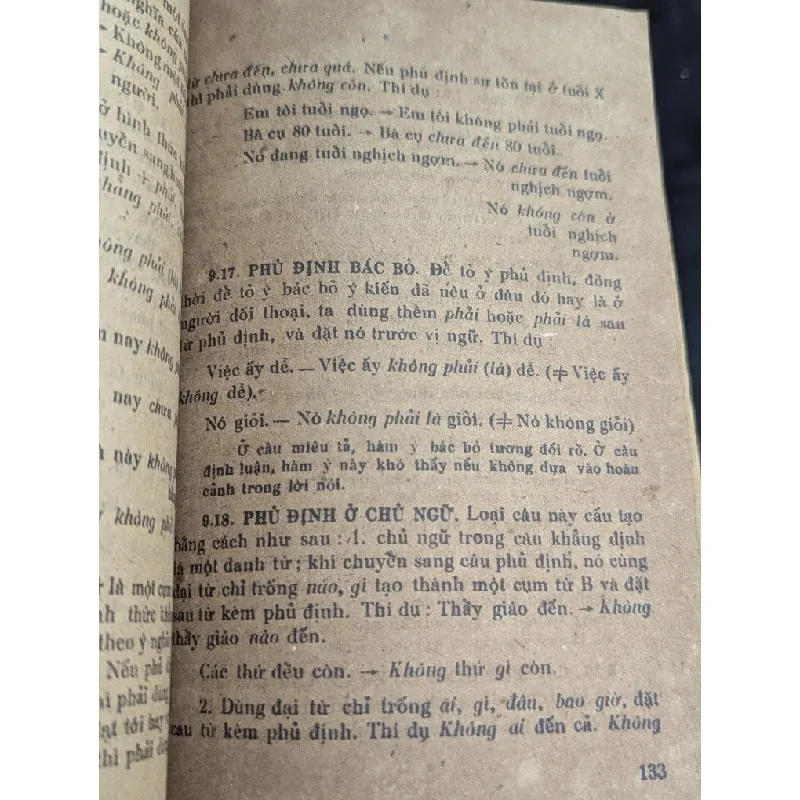 một
nghĩa của
hoặc không
→ Không
Không
người.
ở hình thức
chuyển sang
định + phải
chẳng phải.
không phải
không phải
nay không
nay chưa
này không
không phải
là một cụm
thức
theo ý
Nếu phủ
phải dùng
tôi
thì phải
từ chưa đến, chưa quá. Nếu phủ định sự tồn tại ở tuổi X
thì phải dùng không còn. Thí dụ :
Em tôi tuổi ngọ. → Em tôi không phải tuổi ngọ.
Bà cụ 80 tuổi. → Bà cụ chưa đến 80 tuổi.
Nó đang tuổi nghịch ngợm. → Nó chưa đến tuổi
nghịch ngợm.
Nó không còn ở
tuổi nghịch
ngợm.
9.17. PHỦ ĐỊNH BÁC BỎ. Để tỏ ý phủ định, đồng
thời để tỏ ý bác bỏ ý kiến đã nêu ở đâu đó hay là ở
người đối thoại, ta dùng thêm phải hoặc phải là sau
từ phủ định, và đặt nó trước vị ngữ. Thí dụ
Việc ấy dễ. — Việc ấy không phải (là) dễ. (≠ Việc ấy
không dễ).
Nó giỏi. — Nó không phải là giỏi. (≠ Nó không giỏi)
Ở câu miêu tả, hàm ý bác bỏ tương đối rõ. Ở câu
định luận, hàm ý này khó thấy nếu không dựa vào hoàn
cảnh trong lời nói.
9.18. PHỦ ĐỊNH Ở CHỦ NGỮ. Loại câu này cấu tạo
bằng cách như sau : 1. chủ ngữ trong câu khẳng định
là một danh từ ; khi chuyển sang câu phủ định, nó cùng
đại từ chỉ trống nào, gì tạo thành một cụm từ B và đặt
sau từ kèm phủ định. Thí dụ : Thầy giáo đến. → Không
thầy giáo nào đến.
Các thứ đều còn. → Không thứ gì còn.
2. Dùng đại từ chỉ trống ai, gì, đâu, bao giờ, đặt
sau từ kèm phủ định. Thí dụ Không ai đến cả. Không
133